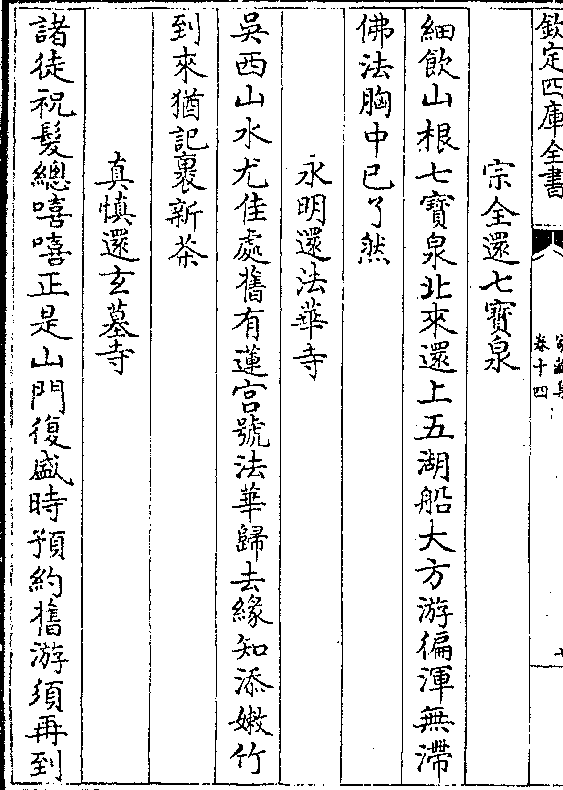 欽定四庫全書
卷十四
宗全還七寶泉
細飲山根七寶泉北來還上五湖船大方游徧渾無滯
佛法胸中已了然
永明還法華寺
吳西山水尤佳處舊有蓮宫號法華歸去緣知添嫩竹
到來猶記裹新茶
真慎還玄墓寺
諸徒祝髮總嘻嘻正是山門復盛時預約舊游須再到